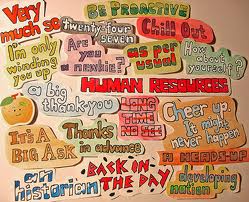 Very
much so
BE PROACTIVE
twenty-four
seven
Chill Out
I'm only
winding
you up
Are
you a
newbie?
as per
usual
How
about
yourself?
a big
thank-you
HUMAN RESOURCES
LONG
TIME
NO SEE
Cheer up.
It might
never happen
IT'S A
BIG ASK
Thanks
in advance
A HEADS-UP
an
historian
BACK IN
THE DAY
developing
nation